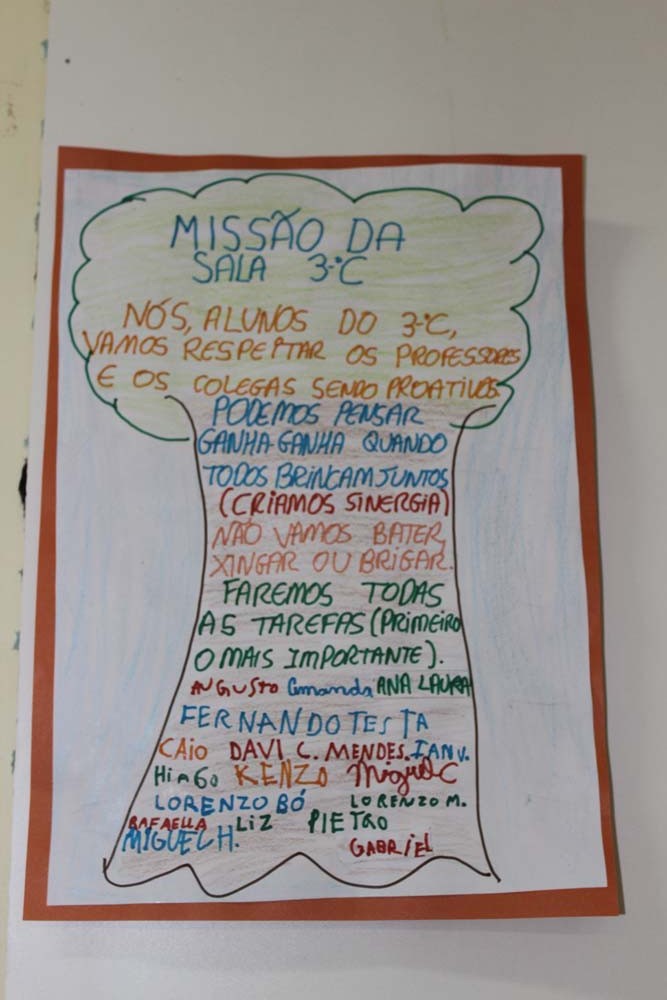 MISSÃO DA
SALA 3ºC
NÓS, ALUNOS DO 3ºC,
VAMOS RESPEITAR OS PROFESSORES
E OS COLEGAS SENDO PROATIVOS.
PODEMOS PENSAR
GANHA-GANHA QUANDO
TODOS BRINCAM JUNTOS
(CRIAMOS SINERGIA)
NÃO VAMOS BATER,
XINGAR OU BRIGAR.
FAREMOS TODAS
AS TAREFAS (PRIMEIRO
O MAIS IMPORTANTE).
AUGUSTO Amanda ANA LAURA
FERNANDO TESTA
CAIO DAVI C. MENDES. IAN V.
HiAGo KENZO Miguel C
LORENZO BÓ LORENZO M.
RAFAELLA LIZ PIETRO
MIGUEL H. GABRIEL